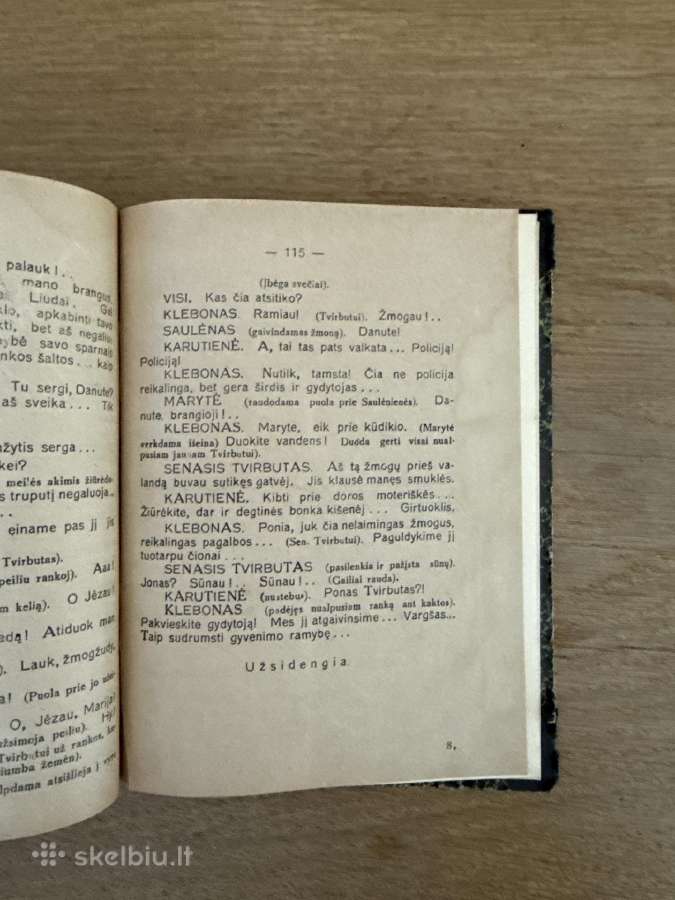 palauk!..
mano brangus,
Liudai. Gei
klo, apkabinti tavo
kti, bet aš negaliu
ybė savo sparnais
nkos šaltos... kaip
Tu sergi, Danute?
aš sveika... Tik
ažytis serga...
kei?
meilės akimis žiūrėda-
s truputį negaluoja...
einame pas jį jis
Tvirbutas).
peiliu rankoj). Aaa!
m kelią). O Jėzau!
edą! Atiduok man
). Lauk, žmogžudy,
a! (Puola prie jo
O, Jėzau, Marija!
žsimoja peiliu).
Tvirbutui už rankos,
iumba žemėn).
lpdama atsišlieja į
— 115 —
(Įbėga svečiai).
VISI. Kas čia atsitiko?
KLEBONAS. Ramiau! (Tvirbutui). Žmogau!..
SAULĖNAS (gaivindamas žmoną). Danute!
KARUTIENĖ. A, tai tas pats valkata... Policiją!
Policiją!
KLEBONAS. Nutilk, tamsta! Čia ne policija
reikalinga, bet gera širdis ir gydytojas...
MARYTĖ (raudodama puola prie Saulėnienės). Da-
nute, brangioji!..
KLEBONAS. Maryte, eik prie kūdikio. (Marytė
verkdama išeina) Duokite vandens! (Duoda gerti visai nual-
pusiam jaunam Tvirbutui).
SENASIS TVIRBUTAS. Aš tą žmogų prieš va-
landą buvau sutikęs gatvėj. Jis klausė manęs smuklės.
KARUTIENĖ. Kibti prie doros moteriškės...
Žiūrėkite, dar ir degtinės bonka kišenėj... Girtuoklis,
KLEBONAS. Ponia, juk čia nelaimingas žmogus,
reikalingas pagalbos... (Sen. Tvirbutui). Paguldykime jį
tuotarpu čionai...
SENASIS TVIRBUTAS (pasilenkia ir pažįsta sūnų).
Jonas? Sūnau!.. Sūnau!.. (Gailiai rauda).
KARUTIENĖ (nustebus). Ponas Tvirbutas?!
KLEBONAS (padėjęs nualpusiam ranką ant kaktos).
Pakvieskite gydytoją! Mes jį atgaivinsime... Vargšas...
Taip sudrumsti gyvenimo ramybę...
Užsidengia.
8.
skelbiu.lt